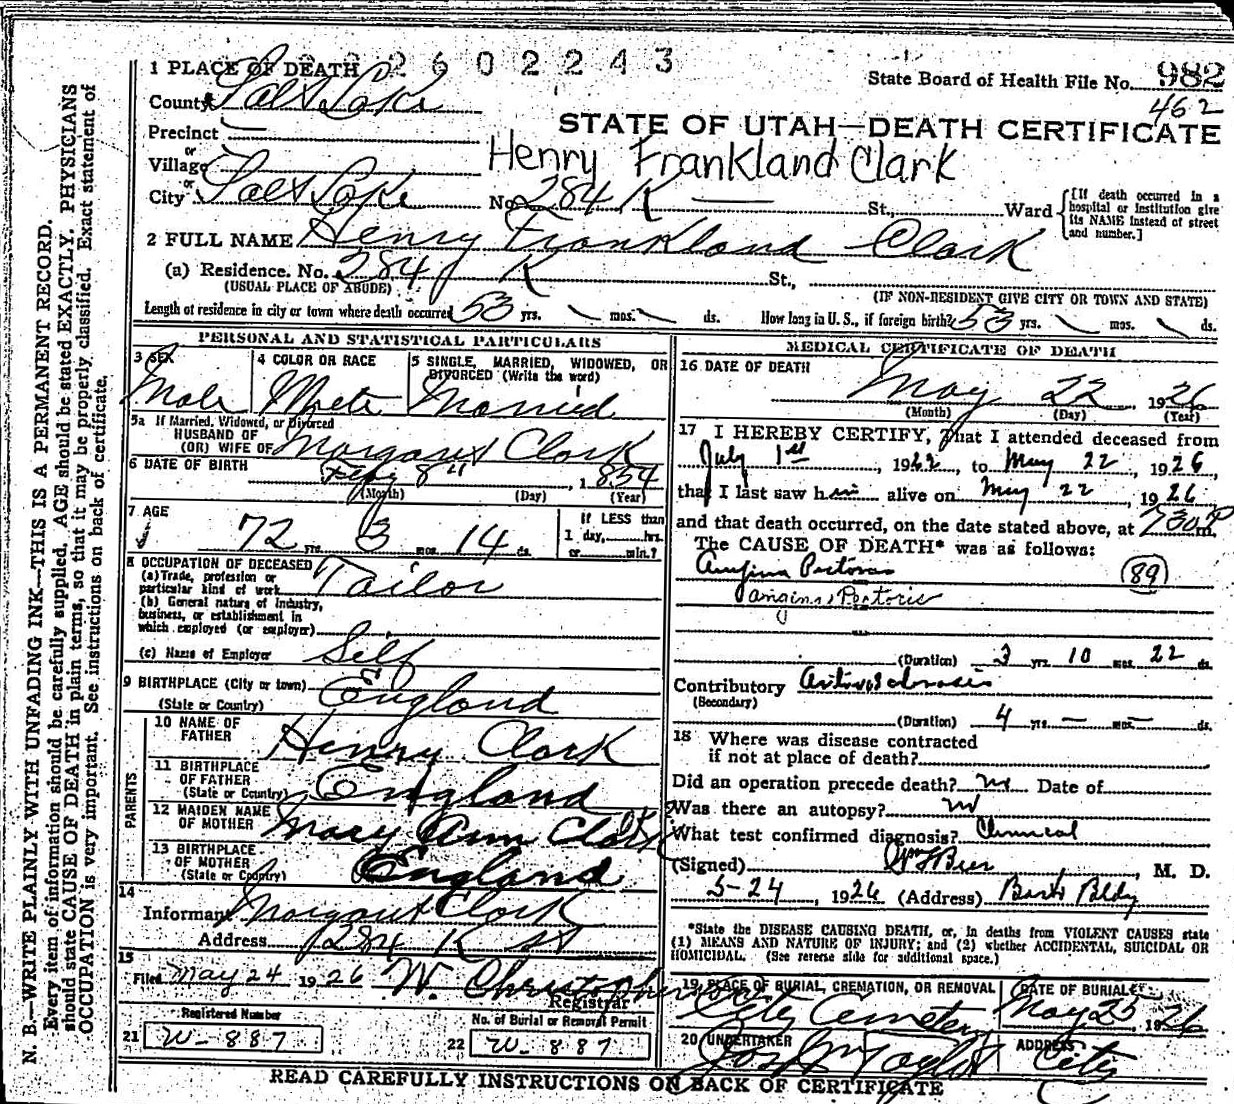 22602243
State Board of Health File No. 982
462
1 PLACE OF DEATH
County Salt Lake
STATE OF UTAH—DEATH CERTIFICATE
Precinct —
or
Village
Henry Frankland Clark
or
City Salt Lake No. 284 K — St., Ward
[If death occurred in a hospital or institution give its NAME instead of street and number.]
2 FULL NAME Henry Frankland Clark
(a) Residence. No. 284 K St.,
(USUAL PLACE OF ABODE) (IF NON-RESIDENT GIVE CITY OR TOWN AND STATE)
Length of residence in city or town where death occurred 53 yrs. mos. ds. How long in U. S., if foreign birth? 53 yrs. mos. ds.
PERSONAL AND STATISTICAL PARTICULARS
3 SEX
Male
4 COLOR OR RACE
5 SINGLE, MARRIED, WIDOWED, OR
DIVORCED (Write the word)
Married
5a If Married, Widowed, or Divorced
HUSBAND OF
(OR) WIFE OF Margaret Clark
6 DATE OF BIRTH 8" , 1 854
(Month) (Day) (Year)
7 AGE
72 yrs. 3 mos. 14 ds.
If LESS than
1 day, hrs.
or min.?
8 OCCUPATION OF DECEASED
(a) Trade, profession or
particular kind of work Tailor
(b) General nature of Industry,
business, or establishment in
which employed (or employer)
(c) Name of Employer Self
9 BIRTHPLACE (City or town)
(State or Country) England
PARENTS
10 NAME OF
FATHER Henry Clark
11 BIRTHPLACE
OF FATHER
(State or Country) England
12 MAIDEN NAME
OF MOTHER Mary Ann Clark
13 BIRTHPLACE
OF MOTHER
(State or Country) England
14
Informant Margaret Clark
Address 284 K St
15
Filed May 24 1926 W. Christopherson
Registrar
Registered Number
21 W-887
No. of Burial or Removal Permit
22 W-887
MEDICAL CERTIFICATE OF DEATH
16 DATE OF DEATH
May 22 , 1926
(Month) (Day) (Year)
17 I HEREBY CERTIFY, That I attended deceased from
July 1st , 1922, to May 22, 1926,
that I last saw him alive on May 22, 1926
and that death occurred, on the date stated above, at 730 P m.
The CAUSE OF DEATH* was as follows:
Angina Pectoris (89)
Angina Pectoris
(Duration) 3 yrs. 10 mos. 22 ds.
Contributory Arteriosclerosis
(Secondary)
(Duration) 4 yrs. — mos. — ds.
18 Where was disease contracted
if not at place of death?
Did an operation precede death? no Date of
Was there an autopsy? no
What test confirmed diagnosis? Clinical
(Signed) , M. D.
5-24, 1926 (Address)
*State the DISEASE CAUSING DEATH, or, in deaths from VIOLENT CAUSES state
(1) MEANS AND NATURE OF INJURY; and (2) whether ACCIDENTAL, SUICIDAL OR
HOMICIDAL. (See reverse side for additional space.)
19 PLACE OF BURIAL, CREMATION, OR REMOVAL
City Cemetery
DATE OF BURIAL
May 25, 1926
20 UNDERTAKER
Jos Wm Taylor
ADDRESS
City
READ CAREFULLY INSTRUCTIONS ON BACK OF CERTIFICATE
N. B.—WRITE PLAINLY WITH UNFADING INK—THIS IS A PERMANENT RECORD.
Every item of information should be carefully supplied. AGE should be stated EXACTLY. PHYSICIANS
should state CAUSE OF DEATH in plain terms, so that it may be properly classified. Exact statement of
OCCUPATION is very important. See instructions on back of certificate.